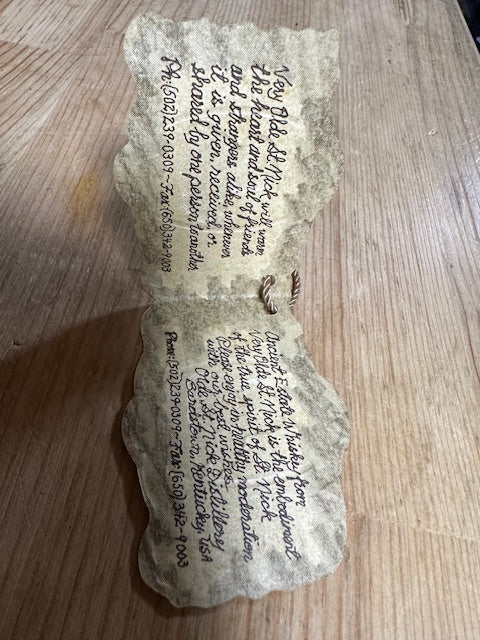 Very Olde St. Nick will warm
the heart and soul of friends
and strangers alike, wherever
it is given, received, or
shared by one person to another
Ph:(502)239-0309-Fax:(650)342-9003
Ancient Estate Whiskey from
Very Olde St. Nick is the embodiment
of the true spirit of St. Nick
Please enjoy in healthy moderation
with our best wishes
Olde St. Nick Distillery
Bardstown, Kentucky, USA
Phone:(502)239-0309~Fax:(650)342-9003